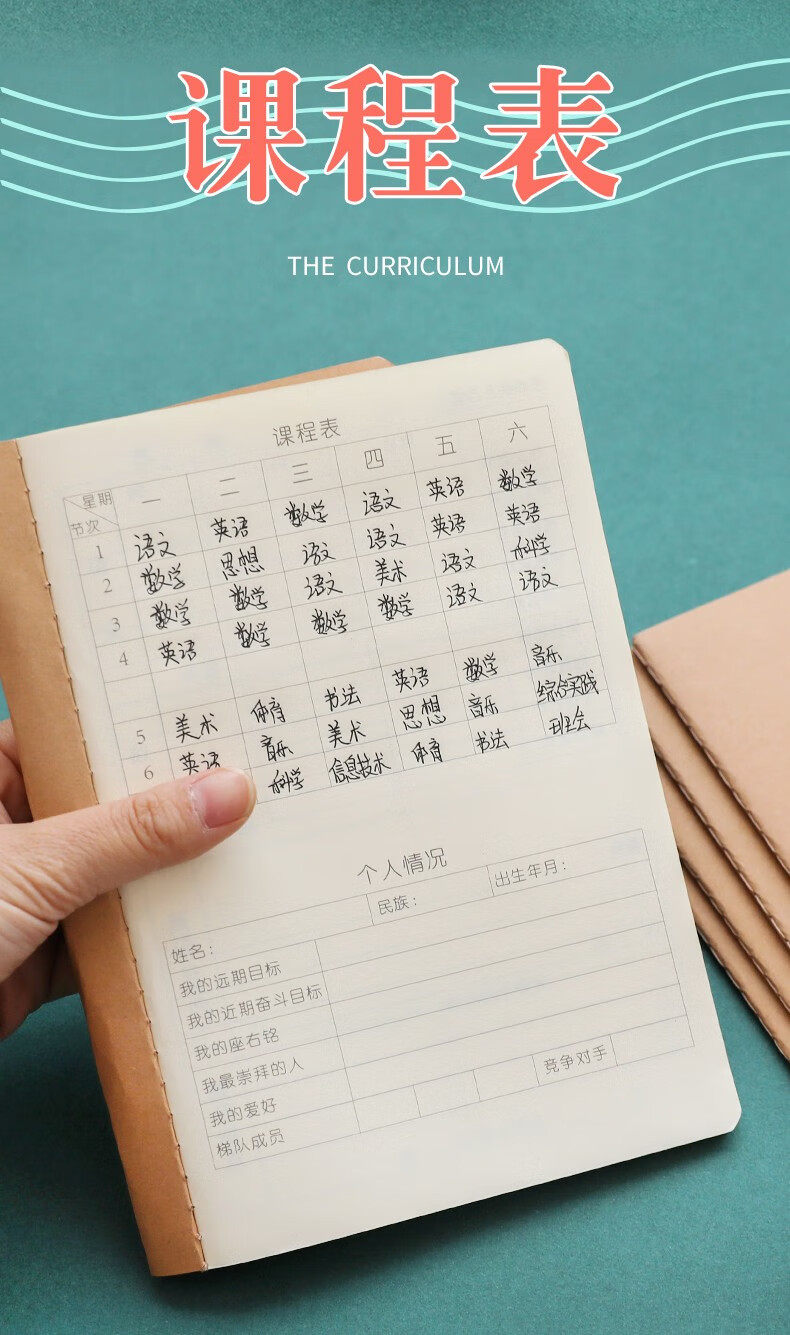 课程表
THE CURRICULUM
课程表
星期 一 二 三 四 五 六
节次
1 语文 英语 数学 语文 英语 数学
2 数学 思想 语文 语文 英语 英语
3 数学 数学 语文 美术 语文 科学
4 英语 数学 数学 数学 语文 语文
5 美术 体育 书法 英语 数学 音乐
6 英语 音乐 美术 思想 音乐 综合实践
科学 信息技术 体育 书法 班会
个人情况
姓名： 民族： 出生年月：
我的远期目标
我的近期奋斗目标
我的座右铭
我最崇拜的人
我的爱好
梯队成员 竞争对手